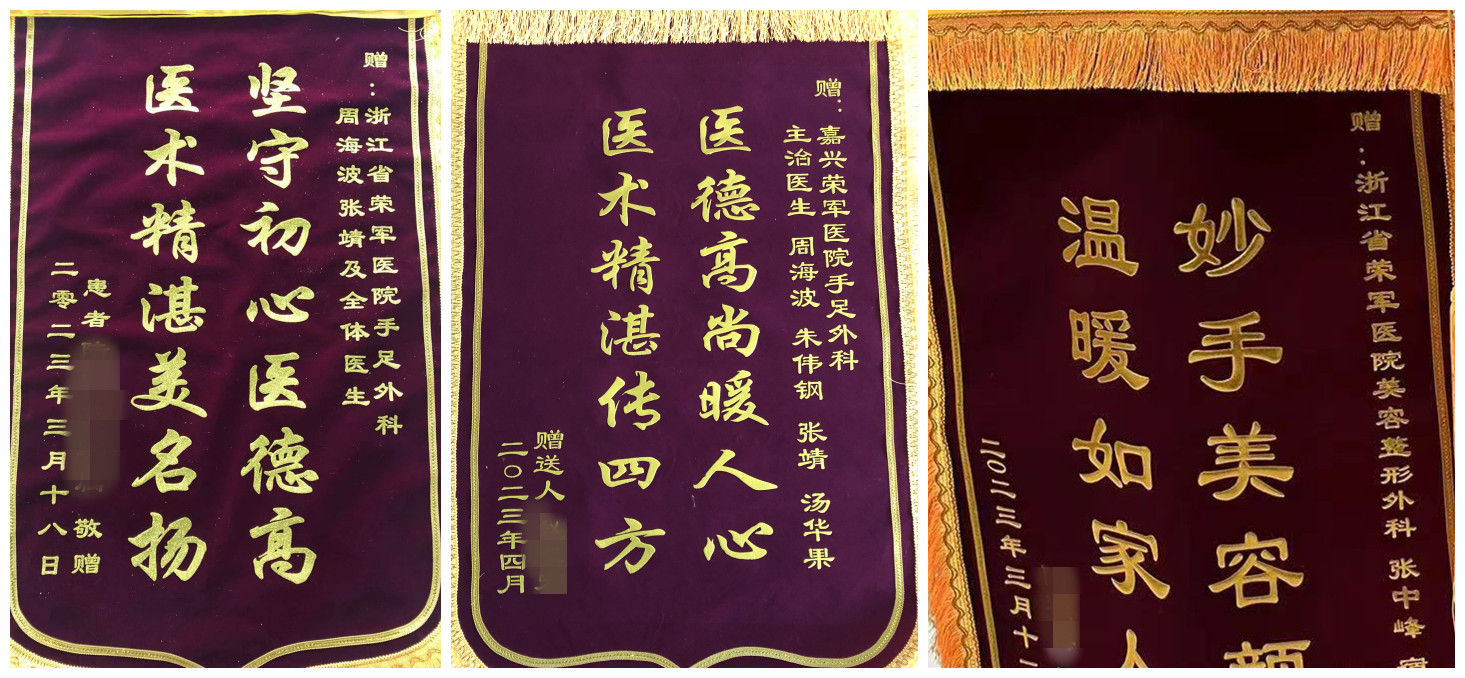 赠：浙江省荣军医院手足外科
周海波张靖及全体医生
坚守初心医德高
医术精湛美名扬
患者 敬赠
二零二三年三月十八日
赠：嘉兴荣军医院手足外科
主治医生 周海波 朱伟钢 张靖 汤华果
医德高尚暖人心
医术精湛传四方
赠送人
二〇二三年四月
赠：浙江省荣军医院美容整形外科 张中峰
妙手美容颜
温暖如家人
二〇二三年三月十